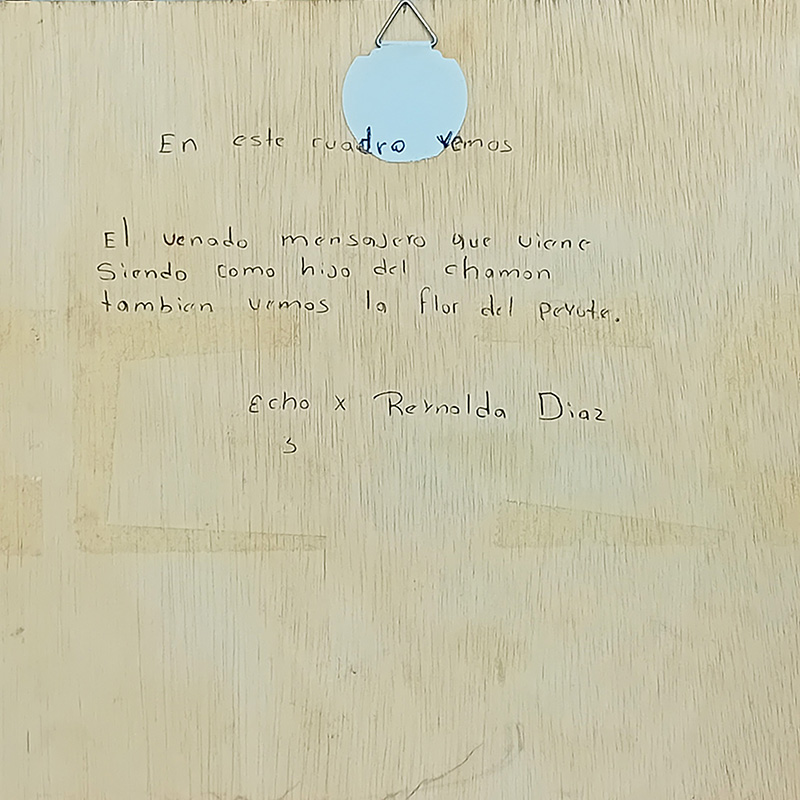 En este cuadro vemos
El venado mensajero que viene
Siendo como hijo del chamon
tambien vemos la flor del peyote.
Echo x Reynolda Diaz
s